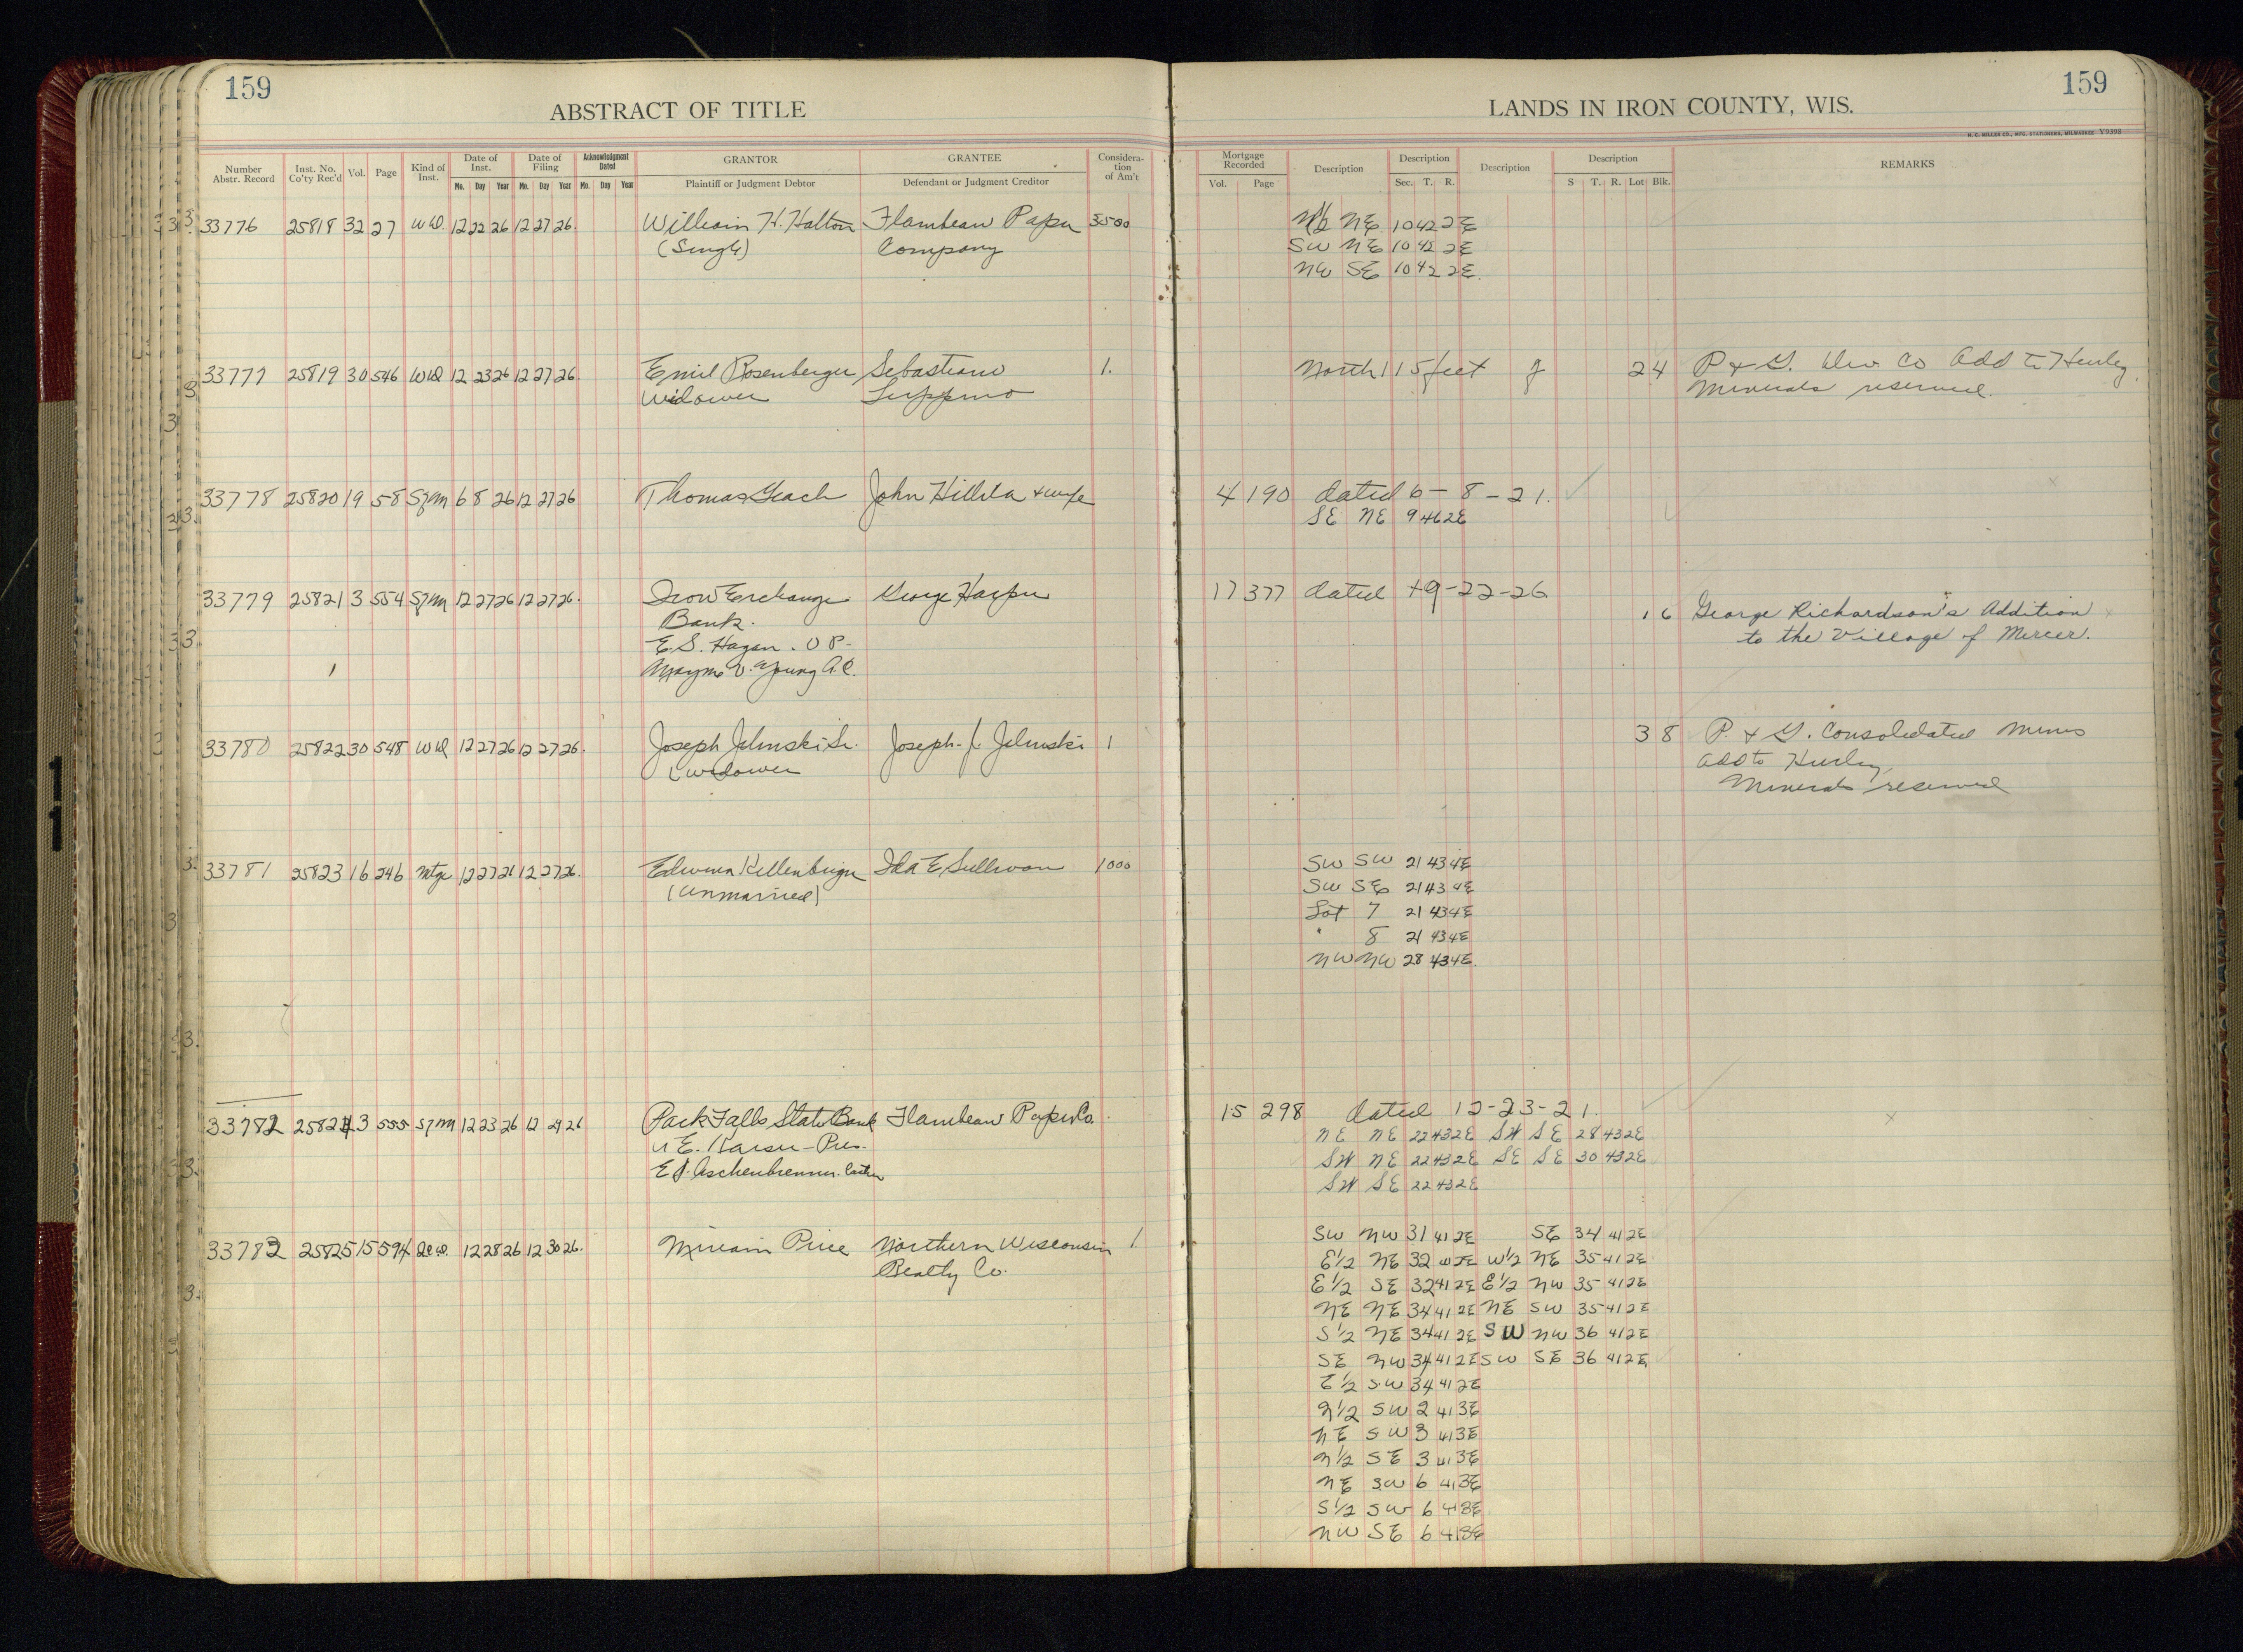 159
ABSTRACT OF TITLE
LANDS IN IRON COUNTY, WIS.
159
H. C. MILLER CO., MFG. STATIONERS, MILWAUKEE V9398
Number Abstr. Record
Inst. No. Co'ty Rec'd
Vol.
Page
Kind of Inst.
Date of Inst.
Mo. Day Year
Date of Filing
Mo. Day Year
Acknowledgment Dated
Mo. Day Year
GRANTOR
Plaintiff or Judgment Debtor
GRANTEE
Defendant or Judgment Creditor
Considera-tion of Am't
Mortgage Recorded
Vol. Page
Description
Description
Sec. T. R.
Description
Description
S T. R. Lot Blk.
REMARKS
33776 25818 32 27 WD. 12 22 26 12 27 26. William H. Halton Flambeau Paper 3500 N½ NE 10 42 2E
(Single) Company SW NE 10 42 2E
NW SE 10 42 2E.
33777 25819 30 546 WD 12 23 26 12 27 26. Emil Rosenberger Sebastiano 1. North 115 feet of 24 P & G. Dev. Co Add to Hurley
Widower Minerals reserved.
33778 25820 19 58 Szm 6 8 26 12 27 26 Thomas Geach John Hillila & wife 4 190 dated 6-8-21.
SE NE 9 46 2E
33779 25821 3 554 Szm 12 27 26 12 27 26. Iron Exchange George Harper 17 377 dated 9-22-26
Bank. 1 6 George Richardson's Addition
E. S. Hagen. V P- to the Village of Mercer.
Mayme V. Young A.C.
33780 25822 30 548 WD 12 27 26 12 27 26. Joseph Jelinski Sr. Joseph J. Jelinski 1 3 8 P. & G. Consolidated Mines
(widower Add to Hurley,
Minerals reserved
33781 25823 16 246 Mtge 12 27 26 12 27 26. Edwina Kellenberger Ida E Sullivan 1000 SW SW 21 43 4E
(Unmarried) SW SE 21 43 4E
Lot 7 21 43 4E
" 8 21 43 4E
NW NW 28 43 4E.
33782 25824 3 555 Szm 12 23 26 12 29 26 Park Falls State Bank Flambeau Paper Co. 15 298 dated 12-23-21.
NE NE 22 43 2E SW SE 28 43 2E
SW NE 22 43 2E SE SE 30 43 2E
E J. Aschenbrenner. Cashier SW SE 22 43 2E
33783 25825 15 594 12 28 26 12 30 26. Miriam Price Northern Wisconsin 1. SW NW 31 41 2E SE 34 41 2E
Realty Co. E½ NE 32 41 2E W½ NE 35 41 2E
E½ SE 32 41 2E E½ NW 35 41 2E
NE NE 34 41 2E NE SW 35 41 2E
S½ NE 34 41 2E SW NW 36 41 2E
SE NW 34 41 2E SW SE 36 41 2E
E½ SW 34 41 2E
N½ SW 2 41 3E
NE SW 3 41 3E
N½ SE 3 41 3E
NE SW 6 41 3E
S½ SW 6 41 3E
NW SE 6 41 3E